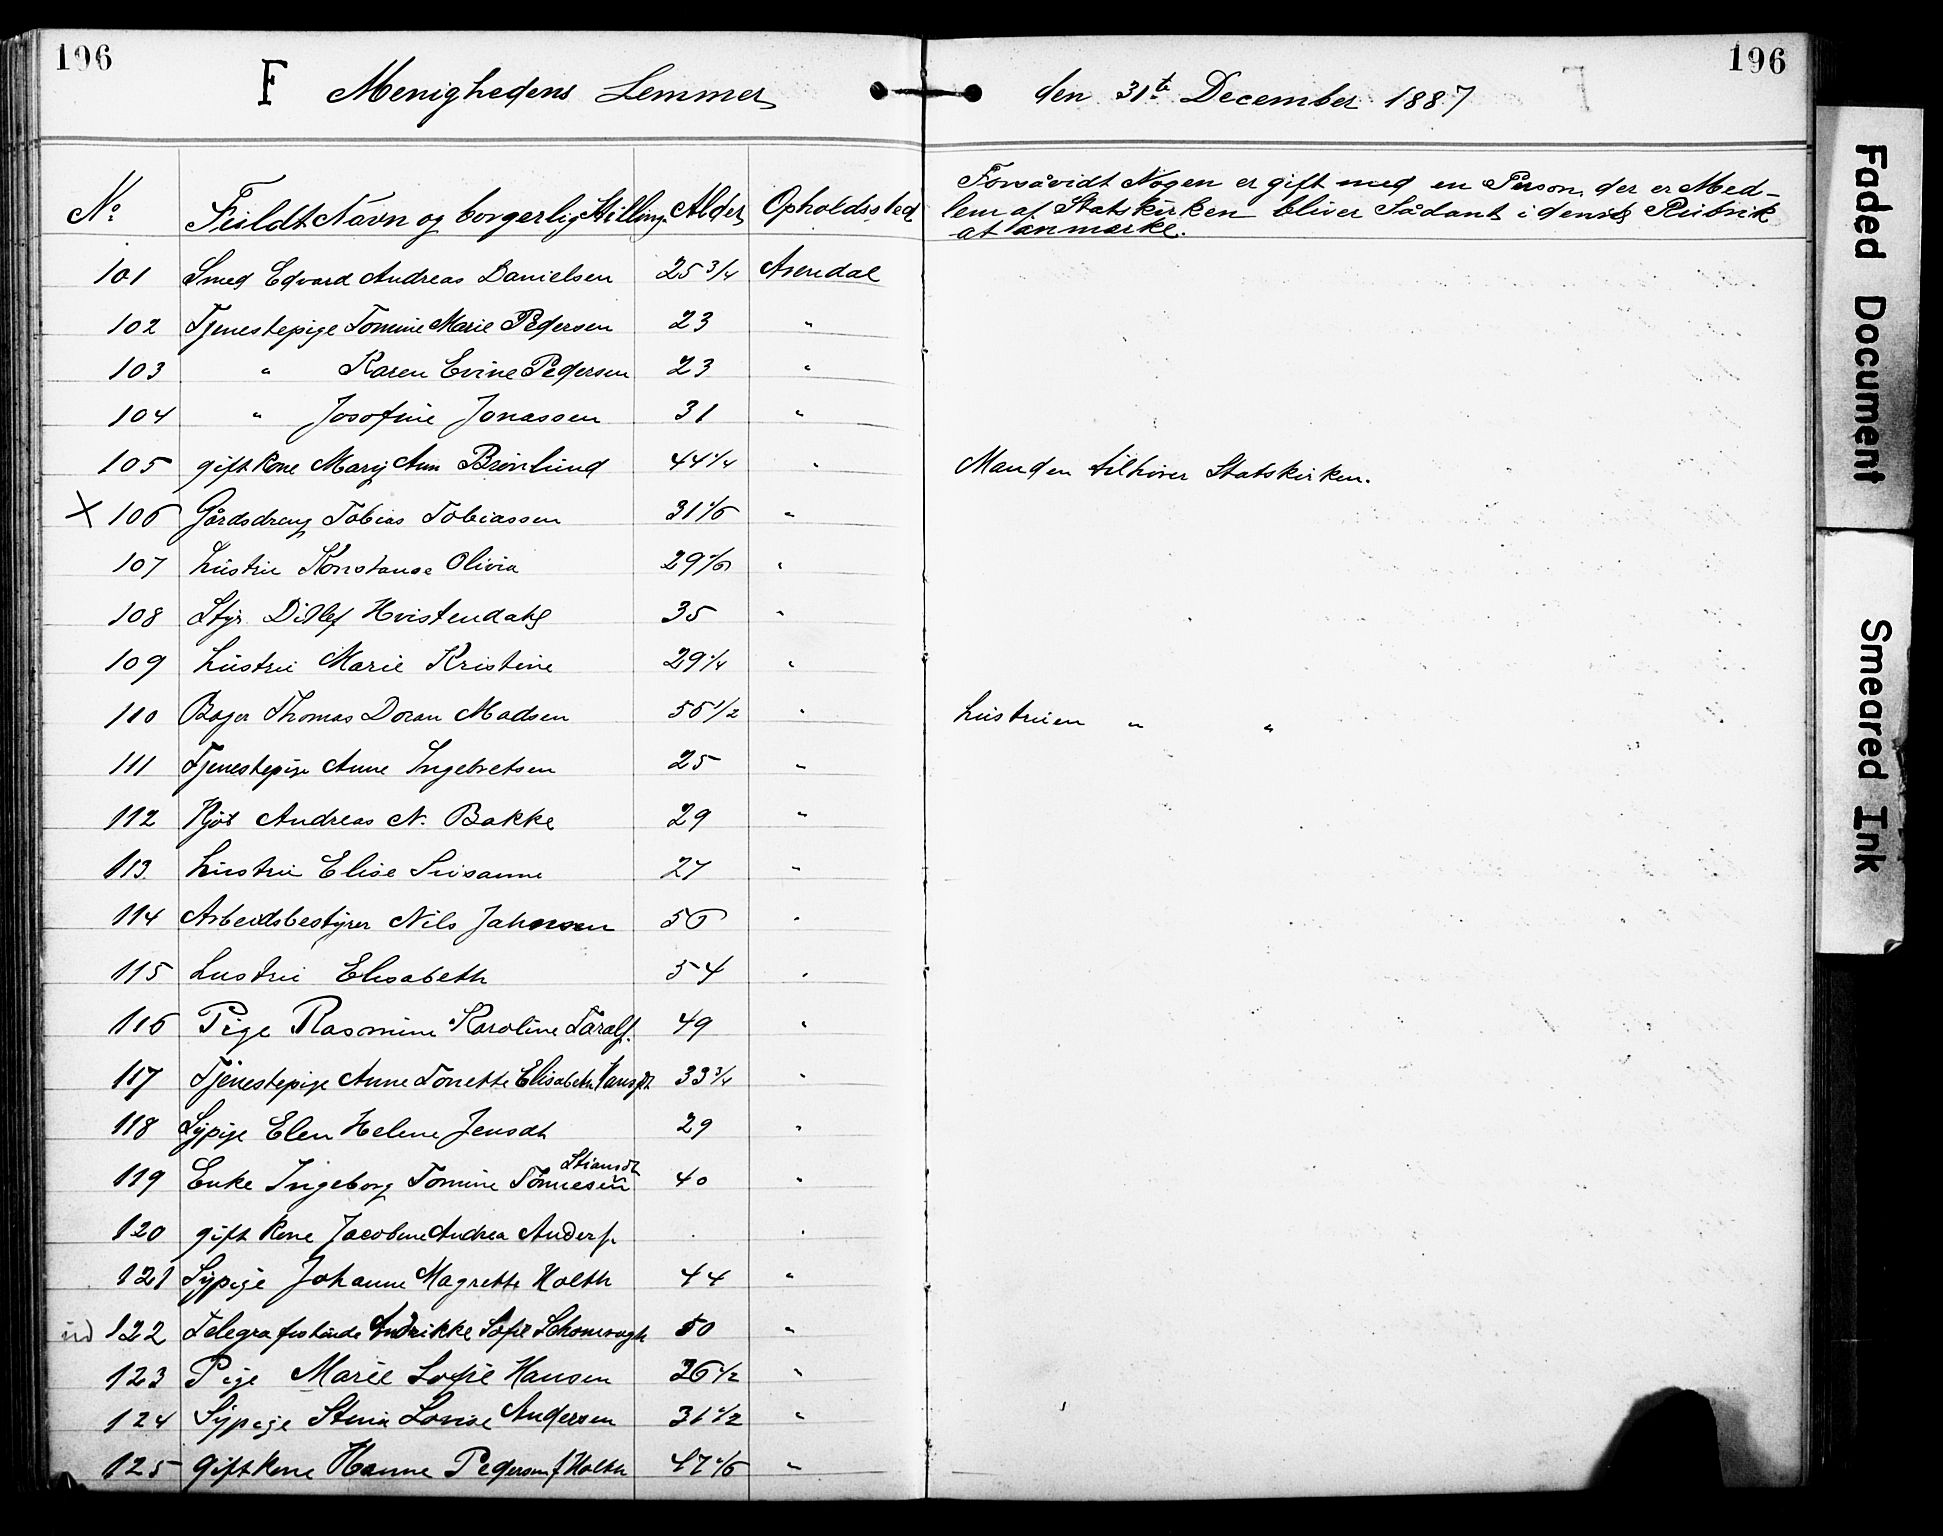 196
F Menighedens Lemmer
den 31te December 1887
196
No. Fuldt Navn og borgerlig Stilling Alder Opholdssted
Forsåvidt Nogen er gift med en Person, der er Med-
lem af Statskirken bliver Sådant i denne Rubrik
at anmærke.
101 Smed Edvard Andreas Danielsen 25 3/4 Arendal
102 Tjenestepige Tomine Marie Pedersen 23 "
103 " Karen Evine Pedersen 23 "
104 " Josofine Jonassen 31 "
105 gift Kone Mary Ann Brønlund 44 1/4 " Manden tilhører Statskirken.
X 106 Gårdsdreng Tobias Tobiassen 31 1/6 "
107 Hustru Konstanse Olivia 29 1/6 "
108 Styr. Ditlef Hvistendahl 35 "
109 Hustru Marie Kristine 29 1/4 "
110 Bager Thomas Doran Madsen 55 1/2 " Hustruen " "
111 Tjenestepige Anne Ingebretsen 25 "
112 Kjøt Andreas N. Bakke 29 "
113 Hustru Elise Susanne 27 "
114 Arbeidsbestyrer Nils Jahnsen 56 "
115 Hustru Elisabeth 54 "
116 Pige Rasmine Karoline Taralf. 49 "
117 Tjenestepige Anne Tonette Elisabeth Hansdt 33 3/4 "
118 Sypige Elen Helene Jensdt 29 "
Stiansdt
119 Enke Ingeborg Tomine Tønnesen 40 "
120 gift Kone Jacobine Andrea Anders. . "
121 Sypige Johanne Magrethe Holth 44 "
ud 122 Telegrafistinde Andrikke Sofie 50 "
123 Pige Marie Sofie Hansen 36 1/2 "
124 Sypige Stina Lovise Andersen 31 1/2 "
125 gift Kone Hanne Pedersen f. Holth 47 1/6 "
Faded Document
Smeared Ink